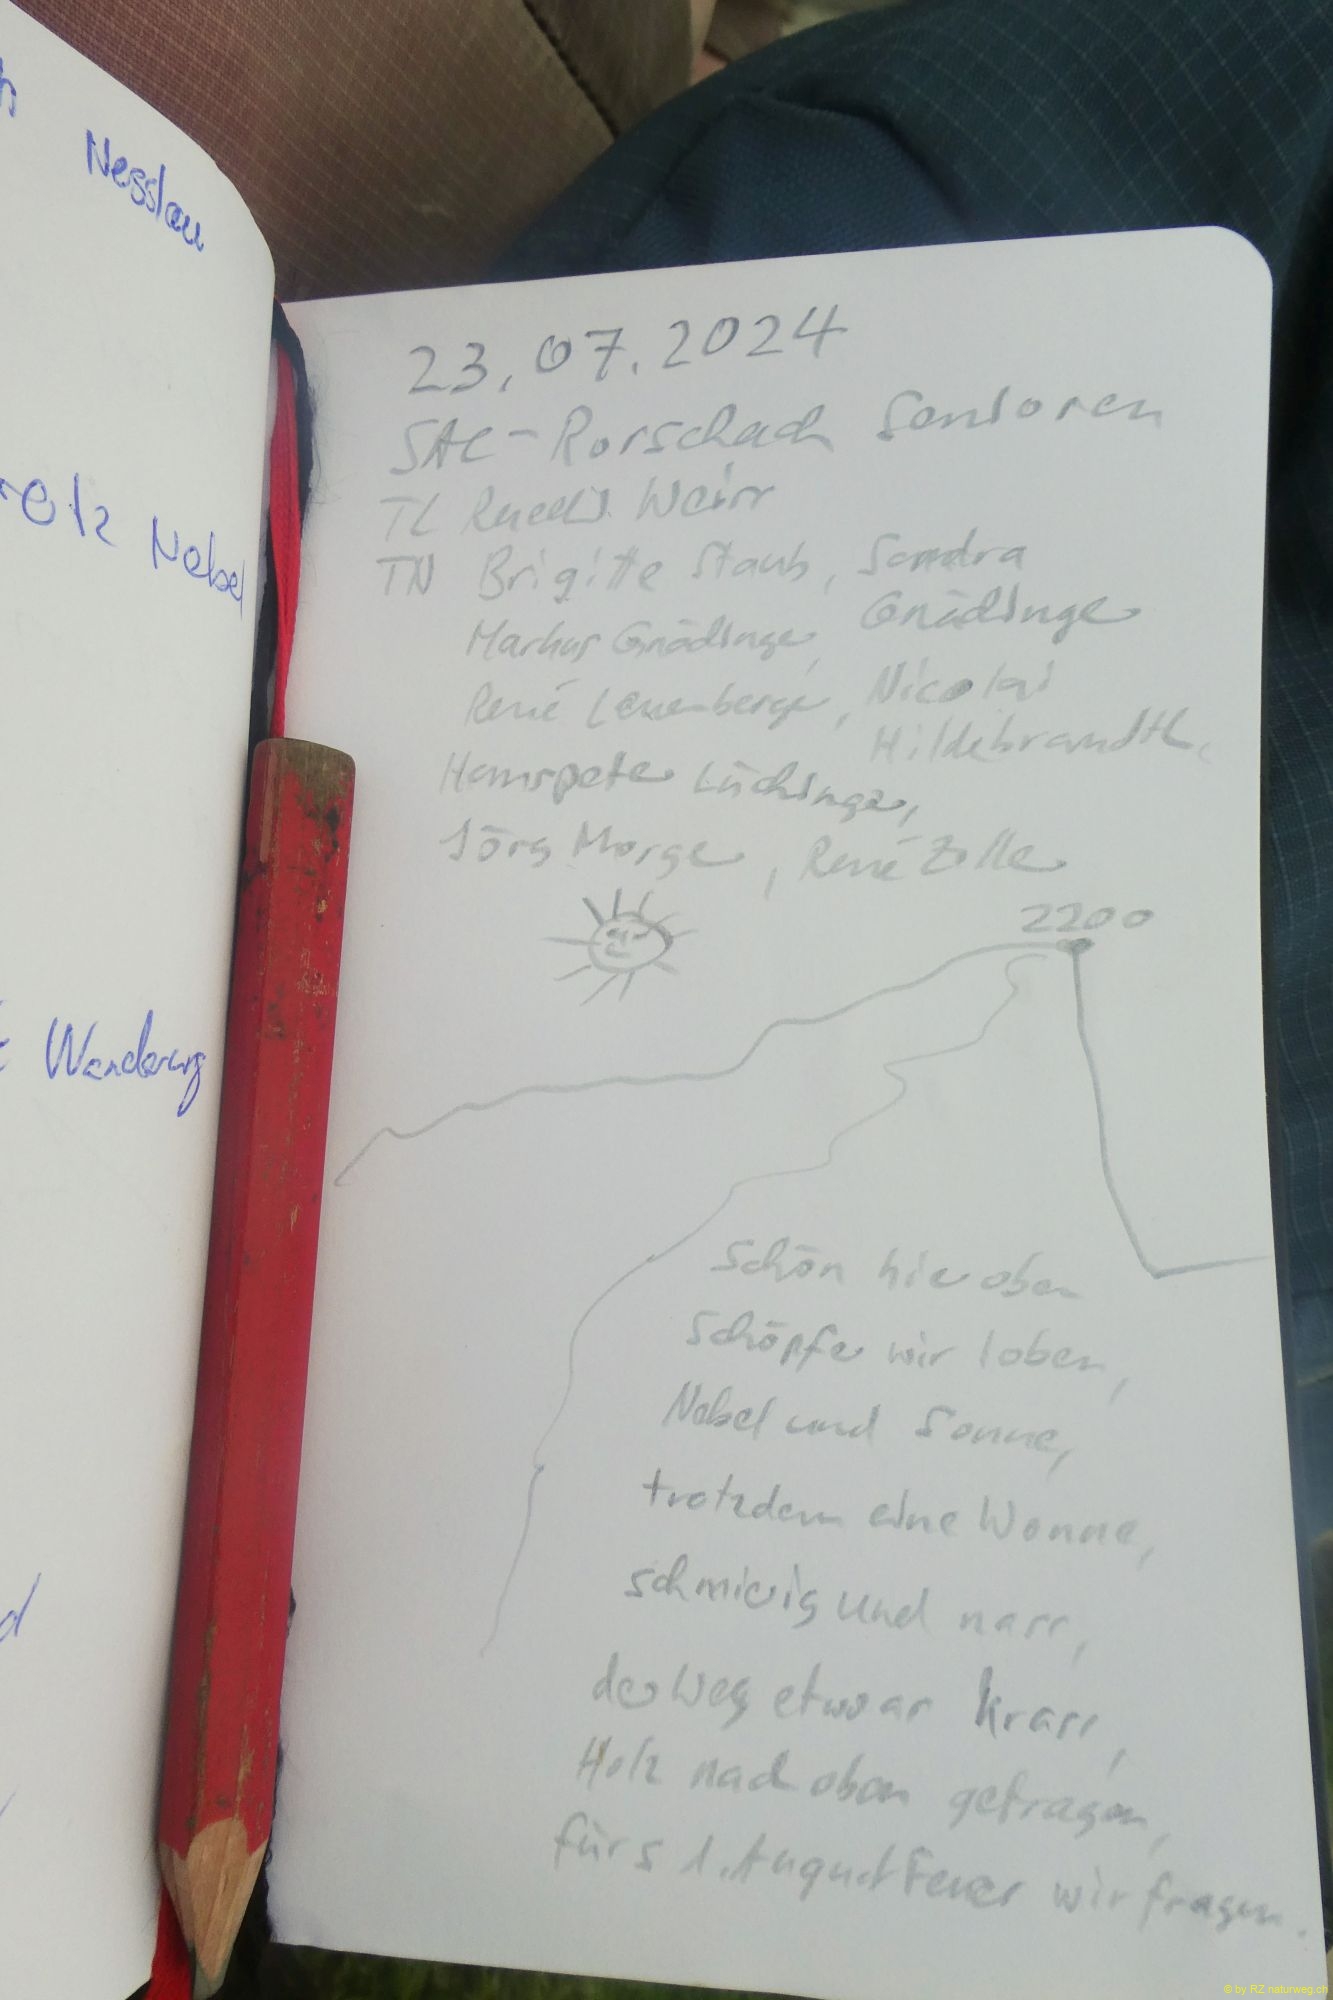 Nesslau
Nebel
Wanderung
23.07.2024
SAC-Rorschach Senioren
TL Ruedi
TN Brigitte Staub, Sandra
Gnädinger
Markus Gnädinger,
René Leuenberger, Nicolai
Hildebrandt,
Hanspeter Lüchinger,
Jörg Morger, René Zoller
2200
Schön hier oben
Schöpfer wir loben,
Nebel und Sonne,
trotzdem eine Wonne,
schmierig und nass,
der Weg etwas krass,
Holz nach oben getragen,
fürs 1. August Feuer wir fragen.
© by RZ naturweg.ch